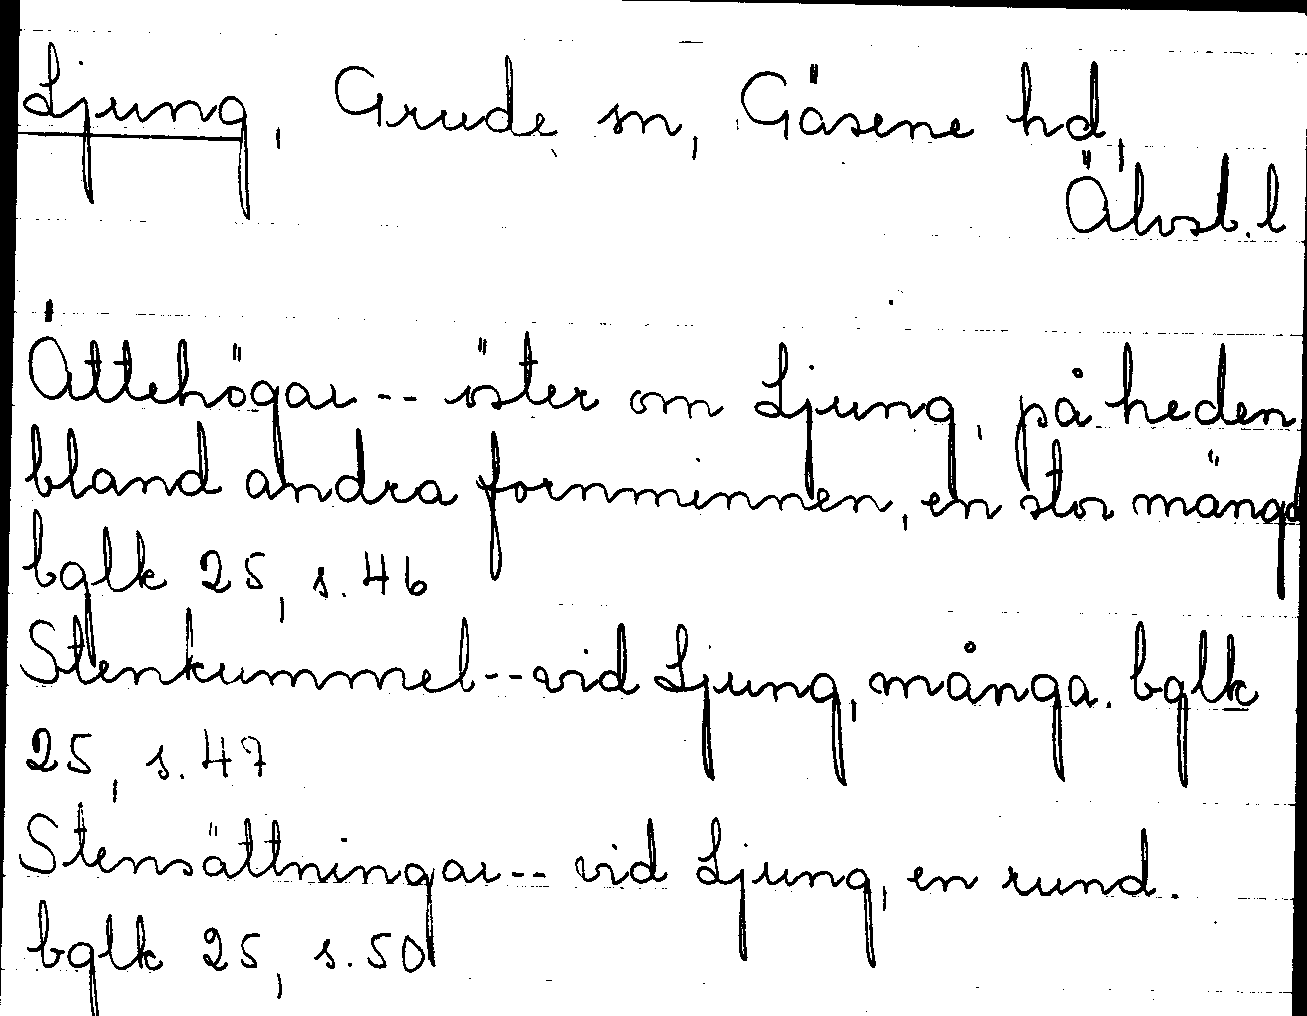 Ljung, Grude sn, Gäsene hd,
Älvsb. l
Ättehögar -- öster om Ljung, på heden
bland andra fornminnen, en stor mängd
bglk 25, s. 46
Stenkummel -- vid Ljung, många. bglk
25, s. 47
Stensättningar -- vid Ljung, en rund.
bglk 25, s. 50